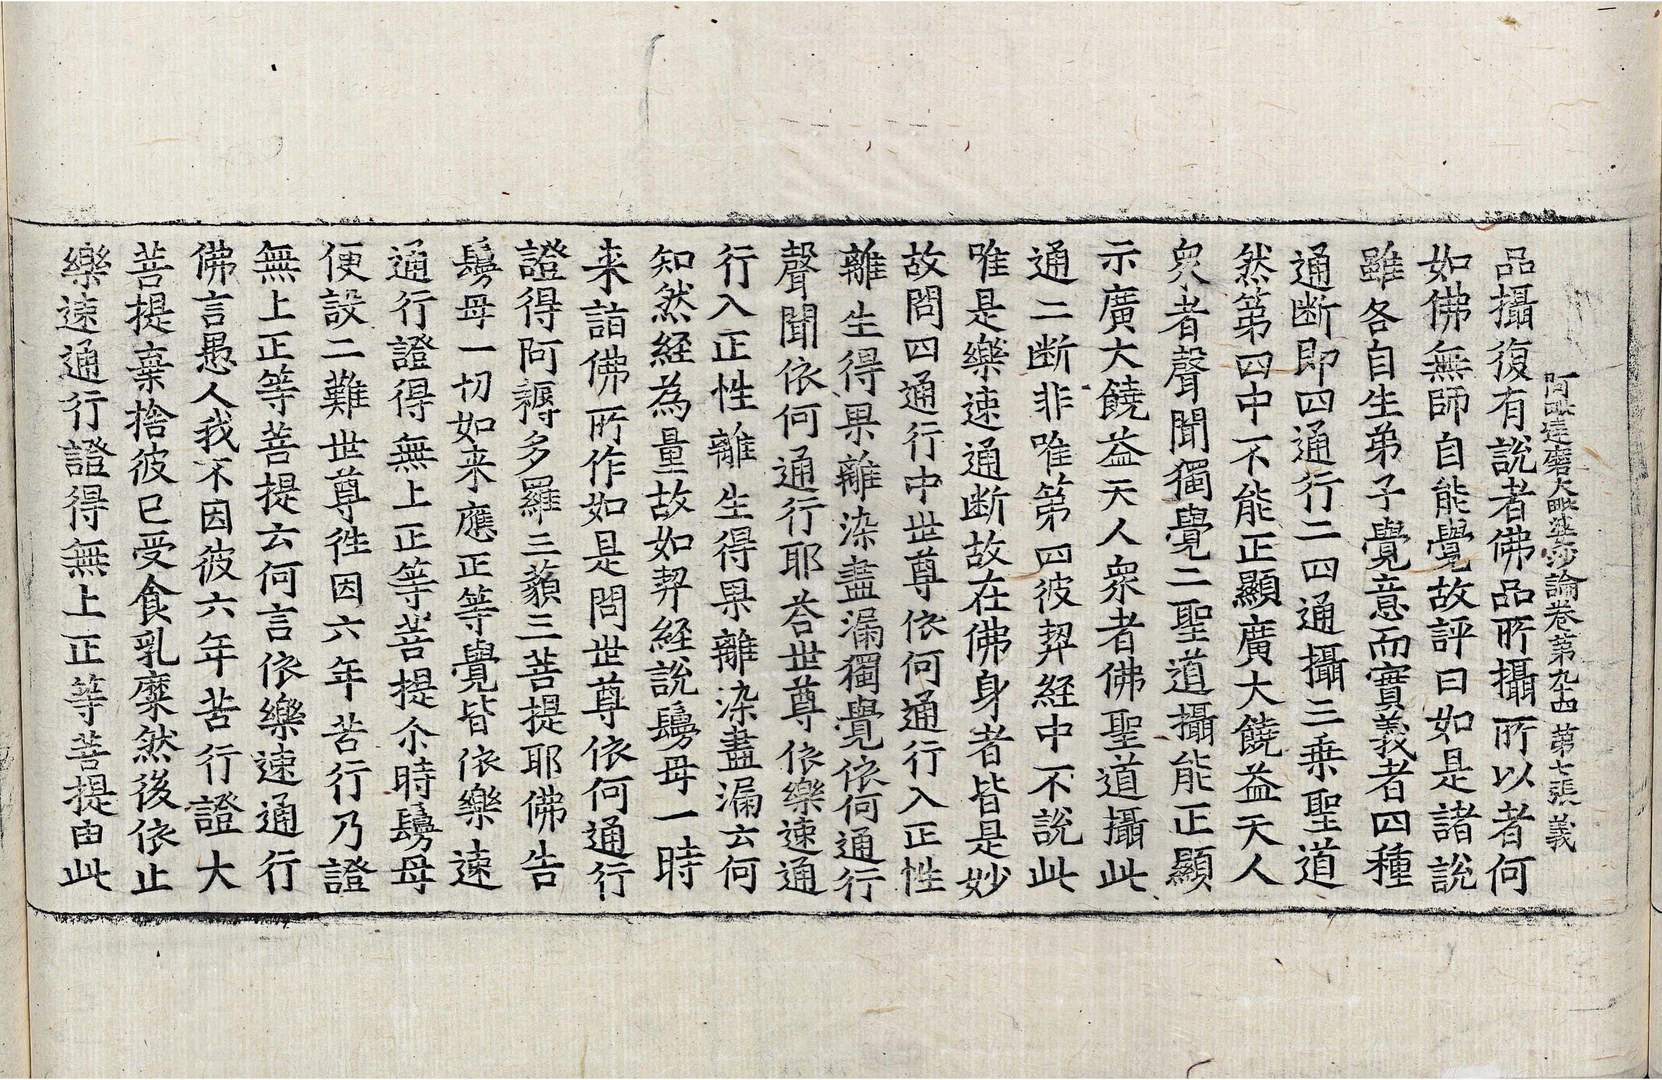 阿毗達磨大毗婆沙論卷第九十四　第七張　義
品攝復有說者佛品所攝所以者何
如佛無師自能覺故評曰如是諸說
雖各自生弟子覺意而實義者四種
通斷即四通行二四通攝三乗聖道
然第四中不能正顯廣大饒益天人
衆者聲聞獨覺二聖道攝能正顯
示廣大饒益天人衆者佛聖道攝此
通二斷非唯第四彼契經中不說此
唯是樂速通斷故在佛身者皆是妙
故問四通行中世尊依何通行入正性
離生得果離染盡漏獨覺依何通行
聲聞依何通行耶荅世尊依樂速通
行入正性離生得果離染盡漏云何
知然經為量故如契經說鬘母一時
来詣佛所作如是問世尊依何通行
證得阿耨多羅三藐三菩提耶佛告
鬘母一切如来應正等覺皆依樂速
通行證得無上正等菩提尒時鬘母
便設二難世尊徃因六年苦行乃證
無上正等菩提云何言依樂速通行
佛言愚人我不因彼六年苦行證大
菩提棄捨彼已受食乳糜然後依止
樂速通行證得無上正等菩提由此